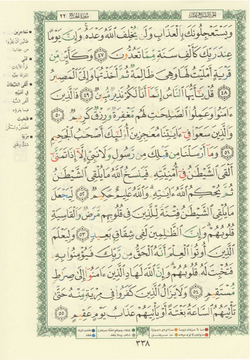 ٢٢
وَيَسْتَعْجِلُونَكَ بِٱلْعَذَابِ وَلَن يُخْلِفَ ٱللَّهُ وَعْدَهُۥ وَإِنَّ يَوْمًا
عِندَ رَبِّكَ كَأَلْفِ سَنَةٍ مِّمَّا تَعُدُّونَ ٤٧ وَكَأَيِّن مِّن
قَرْيَةٍ أَمْلَيْتُ لَهَا وَهِىَ ظَالِمَةٌ ثُمَّ أَخَذْتُهَا وَإِلَىَّ ٱلْمَصِيرُ
٤٨ قُلْ يَٰٓأَيُّهَا ٱلنَّاسُ إِنَّمَآ أَنَا۠ لَكُمْ نَذِيرٌ مُّبِينٌ ٤٩ فَٱلَّذِينَ
ءَامَنُوا۟ وَعَمِلُوا۟ ٱلصَّٰلِحَٰتِ لَهُم مَّغْفِرَةٌ وَرِزْقٌ كَرِيمٌ ٥٠
وَٱلَّذِينَ سَعَوْا۟ فِىٓ ءَايَٰتِنَا مُعَٰجِزِينَ أُو۟لَٰٓئِكَ أَصْحَٰبُ ٱلْجَحِيمِ
٥١ وَمَآ أَرْسَلْنَا مِن قَبْلِكَ مِن رَّسُولٍ وَلَا نَبِىٍّ إِلَّآ إِذَا تَمَنَّىٰٓ
أَلْقَى ٱلشَّيْطَٰنُ فِىٓ أُمْنِيَّتِهِۦ فَيَنسَخُ ٱللَّهُ مَا يُلْقِى ٱلشَّيْطَٰنُ
ثُمَّ يُحْكِمُ ٱللَّهُ ءَايَٰتِهِۦ وَٱللَّهُ عَلِيمٌ حَكِيمٌ ٥٢ لِّيَجْعَلَ
مَا يُلْقِى ٱلشَّيْطَٰنُ فِتْنَةً لِّلَّذِينَ فِى قُلُوبِهِم مَّرَضٌ وَٱلْقَاسِيَةِ
قُلُوبُهُمْ وَإِنَّ ٱلظَّٰلِمِينَ لَفِى شِقَاقٍۭ بَعِيدٍ ٥٣ وَلِيَعْلَمَ
ٱلَّذِينَ أُوتُوا۟ ٱلْعِلْمَ أَنَّهُ ٱلْحَقُّ مِن رَّبِّكَ فَيُؤْمِنُوا۟ بِهِۦ
فَتُخْبِتَ لَهُۥ قُلُوبُهُمْ وَإِنَّ ٱللَّهَ لَهَادِ ٱلَّذِينَ ءَامَنُوٓا۟ إِلَىٰ صِرَٰطٍ
مُّسْتَقِيمٍ ٥٤ وَلَا يَزَالُ ٱلَّذِينَ كَفَرُوا۟ فِى مِرْيَةٍ مِّنْهُ حَتَّىٰ
تَأْتِيَهُمُ ٱلسَّاعَةُ بَغْتَةً أَوْ يَأْتِيَهُمْ عَذَابُ يَوْمٍ عَقِيمٍ ٥٥
٣٣٨